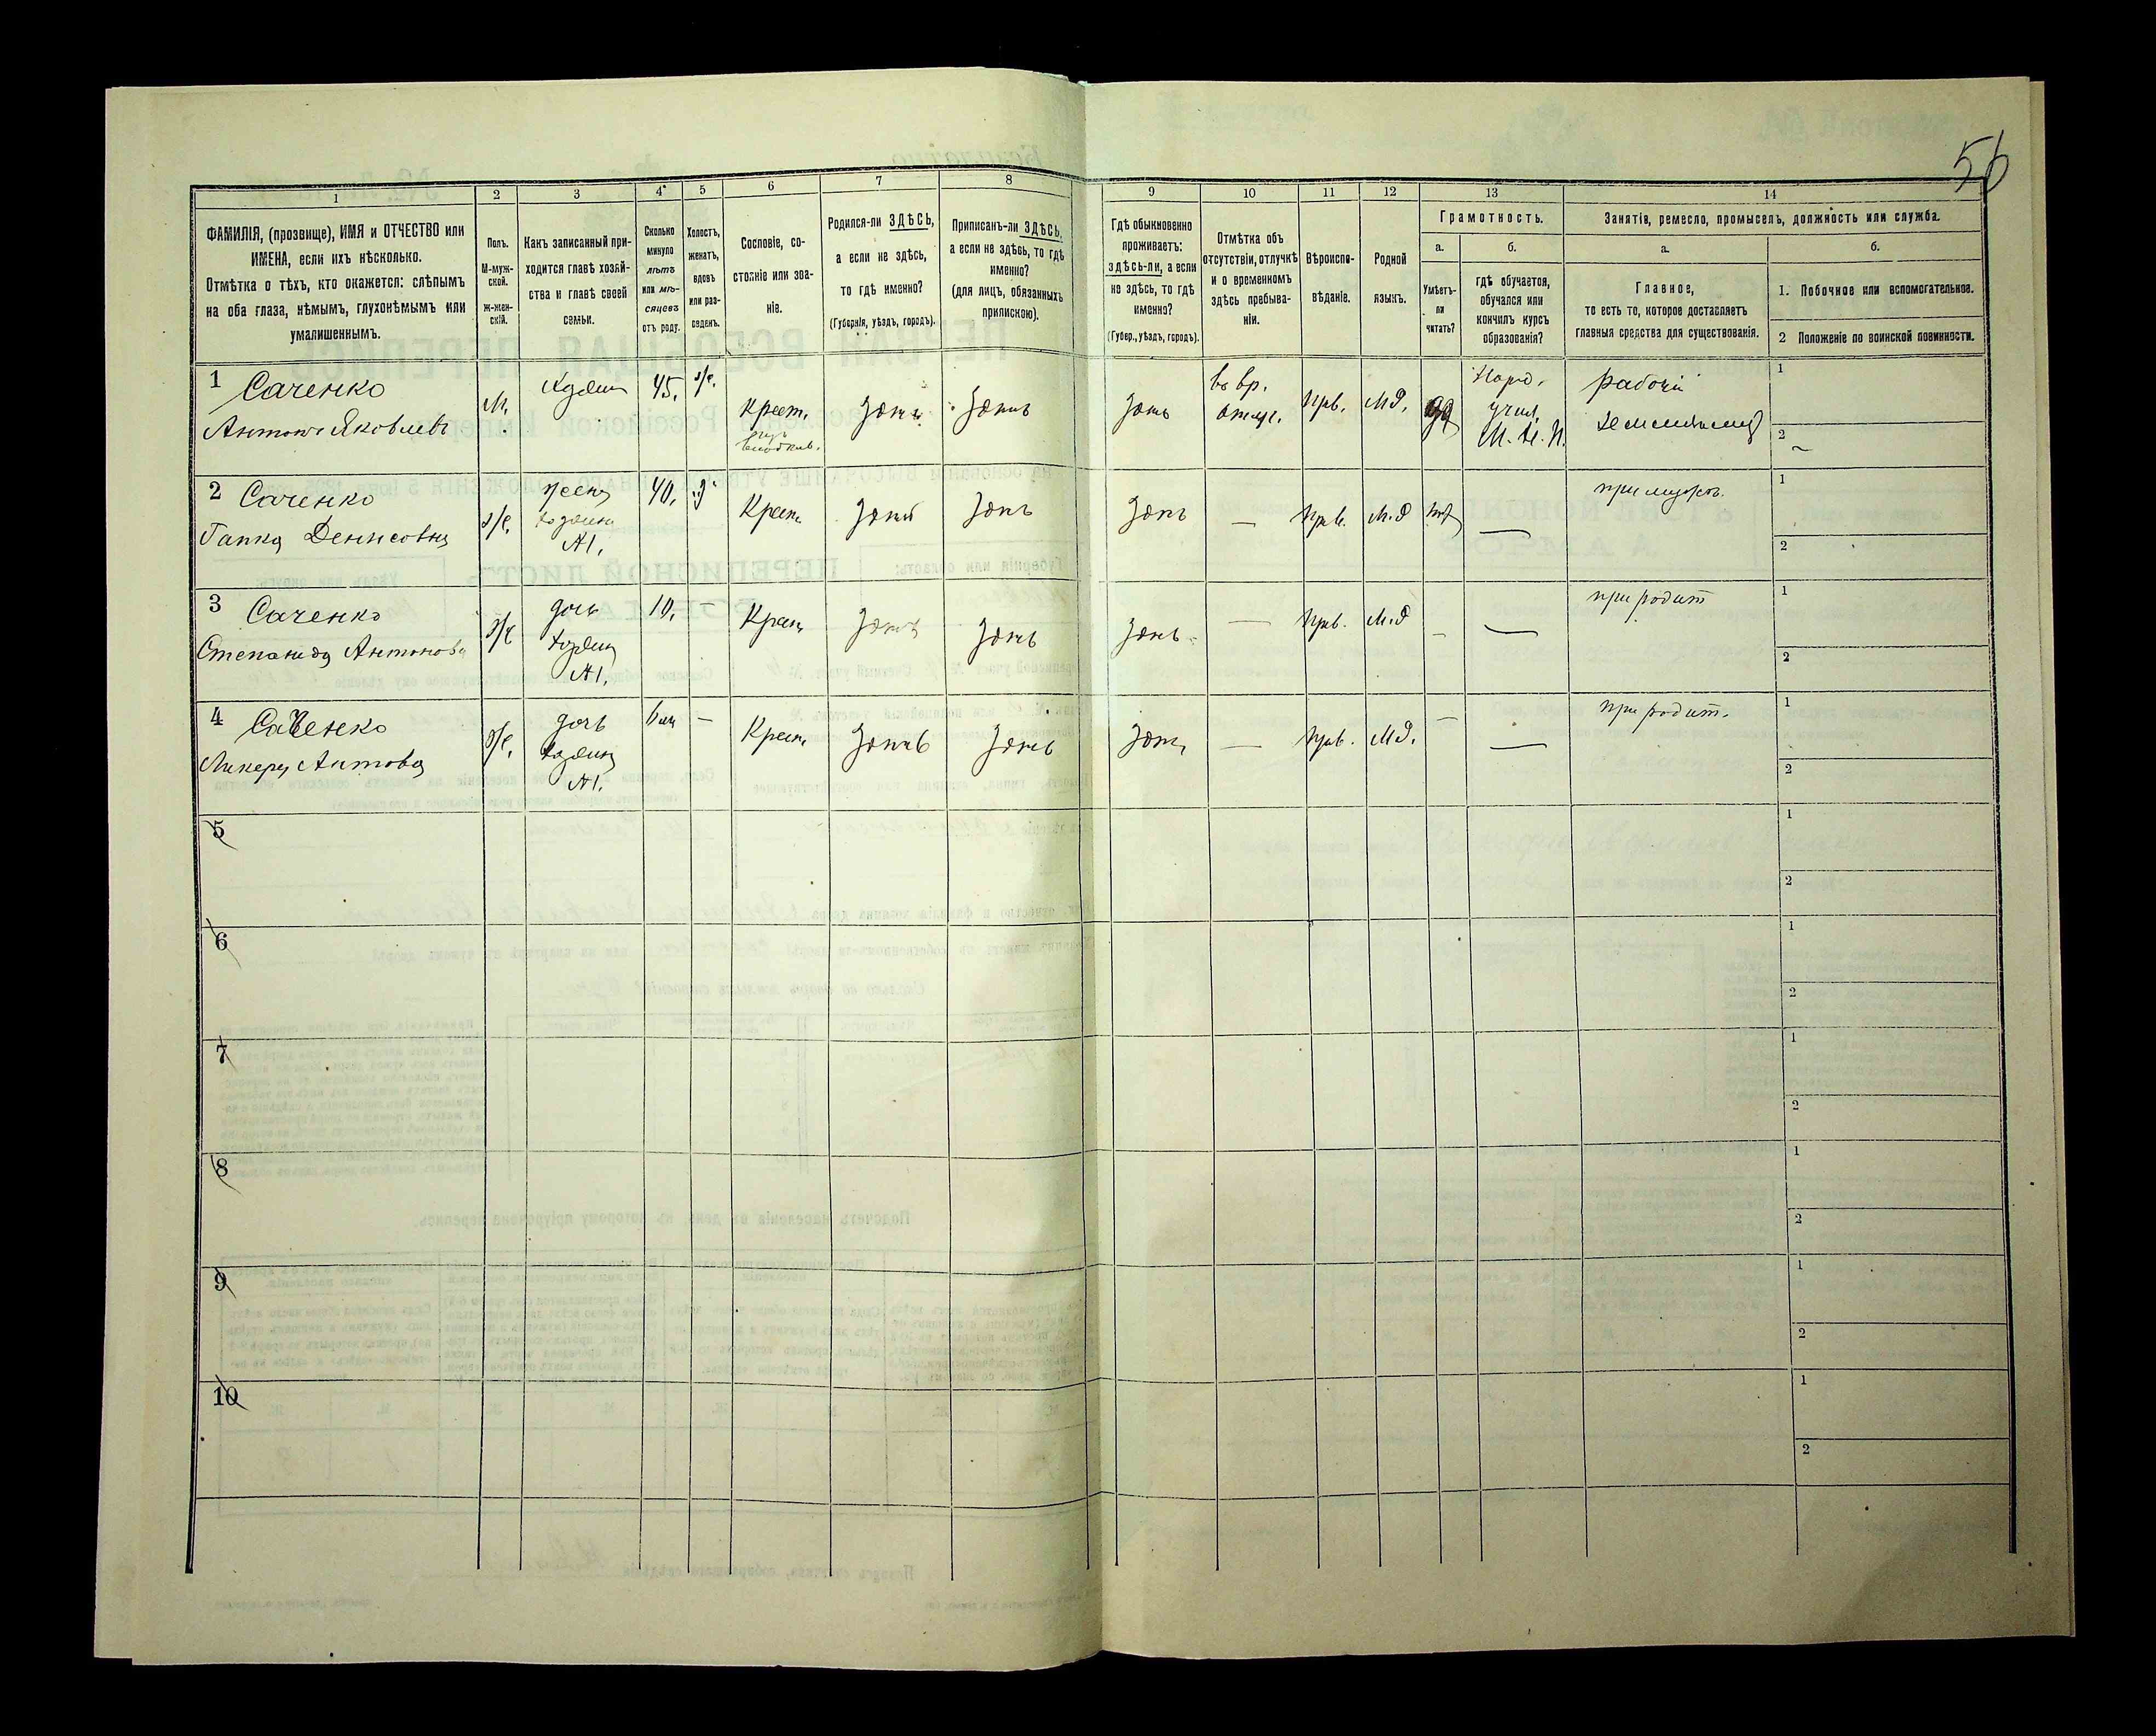 56
1 2 3 4 5 6 7 8 9 10 11 12 13 14
ФАМИЛІЯ, (прозвище), ИМЯ и ОТЧЕСТВО или
ИМЕНА, если ихъ нѣсколько.
Отмѣтка о тѣхъ, кто окажется: слѣпымъ
на оба глаза, нѣмымъ, глухонѣмымъ или
умалишеннымъ.
Полъ.
М-муж-
ской.
Ж-жен-
скій.
Какъ записанный при-
ходится главѣ хозяй-
ства и главѣ своей
семьи.
Сколько
минуло
лѣтъ
или мѣ-
сяцевъ
отъ роду.
Холостъ,
женатъ,
вдовъ
или раз-
веденъ.
Сословіе, со-
стояніе или зва-
ніе.
Родился-ли ЗДѢСЬ,
а если не здѣсь,
то гдѣ именно?
(Губернія, уѣздъ, городъ).
Приписанъ-ли ЗДѢСЬ,
а если не здѣсь, то гдѣ
именно?
(для лицъ, обязанныхъ
припискою).
Гдѣ обыкновенно
проживаетъ:
здѣсь-ли, а если
не здѣсь, то гдѣ
именно?
(Губер., уѣздъ, городъ).
Отмѣтка объ
отсутствіи, отлучкѣ
и о временномъ
здѣсь пребыва-
ніи.
Вѣроиспо-
вѣданіе.
Родной
языкъ.
Грамотность.
а.
Умѣетъ-
ли
читать?
б.
гдѣ обучается,
обучался или
кончилъ курсъ
образованія?
Занятія, ремесло, промыселъ, должность или служба.
а.
Главное,
то есть то, которое доставляетъ
главныя средства для существованія.
б.
1. Побочное или вспомогательное.
2 Положеніе по воинской повинности.
1 Саченко
Антонъ Яковлевъ
М. 45. ж. Крест.
здѣсь здѣсь здѣсь
въ вр.
отлуч.
Прв. М.д.
Народ.
учил.
М. Н. П.
рабочій
1
2
2 Саченко
Гапка Денисовна
ж. жена
хозяина
№1.
40. Крест. здѣсь здѣсь здѣсь — Прв. М.д —
при мужѣ.
1
2
3 Саченко
Степанида Антонова
ж дочь
хозяина
№1.
10. — Крест. здѣсь здѣсь здѣсь — Прв. М.д — —
при родит
1
2
4 Саченко
Ликера Антонова
ж. дочь
хозяина
№1.
— Крест. здѣсь здѣсь здѣсь — Прв. М.д. — —
при родит.
1
2
5
1
2
6
1
2
7
1
2
8
1
2
9
1
2
10
1
2